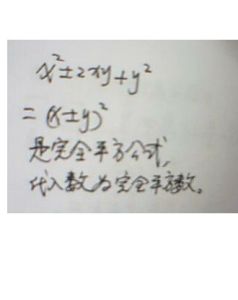 x²±2xy+y²
=(x±y)²
是完全平方公式,
代入数为完全平方数。